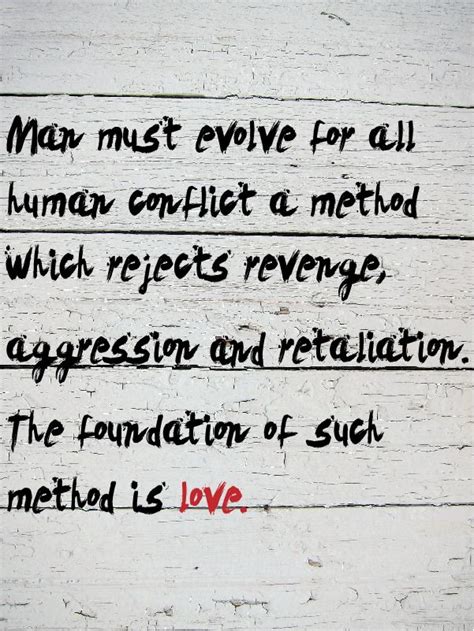 Man must evolve for all
human conflict a method
which rejects revenge,
aggression and retaliation.
The foundation of such
method is love.